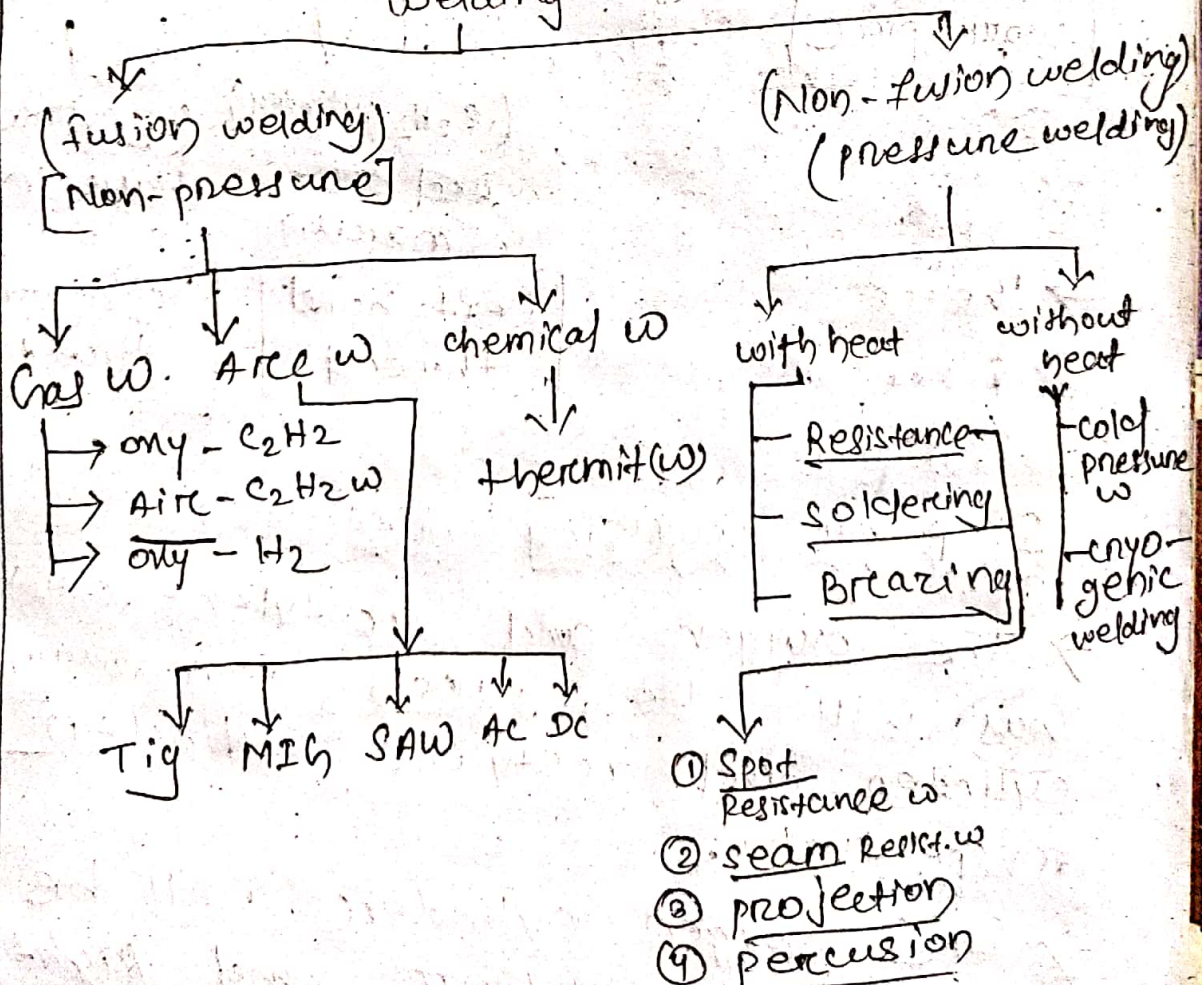 Welding
(fusion welding)
[Non-pressure]
(Non-fusion welding)
(pressure welding)
Gas W.
Arc W
chemical W
with heat
without
heat
→ oxy - C2H2
→ Air - C2H2 W
→ oxy - H2
thermit (W)
Resistance
Soldering
Breazing
cold
pressure
W
cryo-
genic
welding
Tig
MIG
SAW
AC
DC
① Spot
Resistance W
② seam Resist. W
③ projection
④ percusion